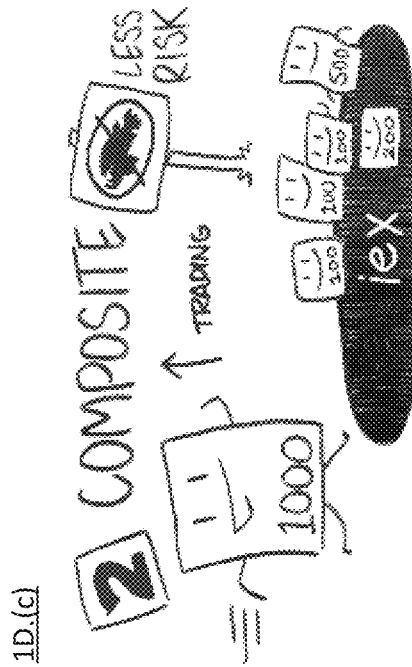 1D.(c)
2 COMPOSITE
LESS
RISK
TRADING
1000
100
100
100
500
200
iex